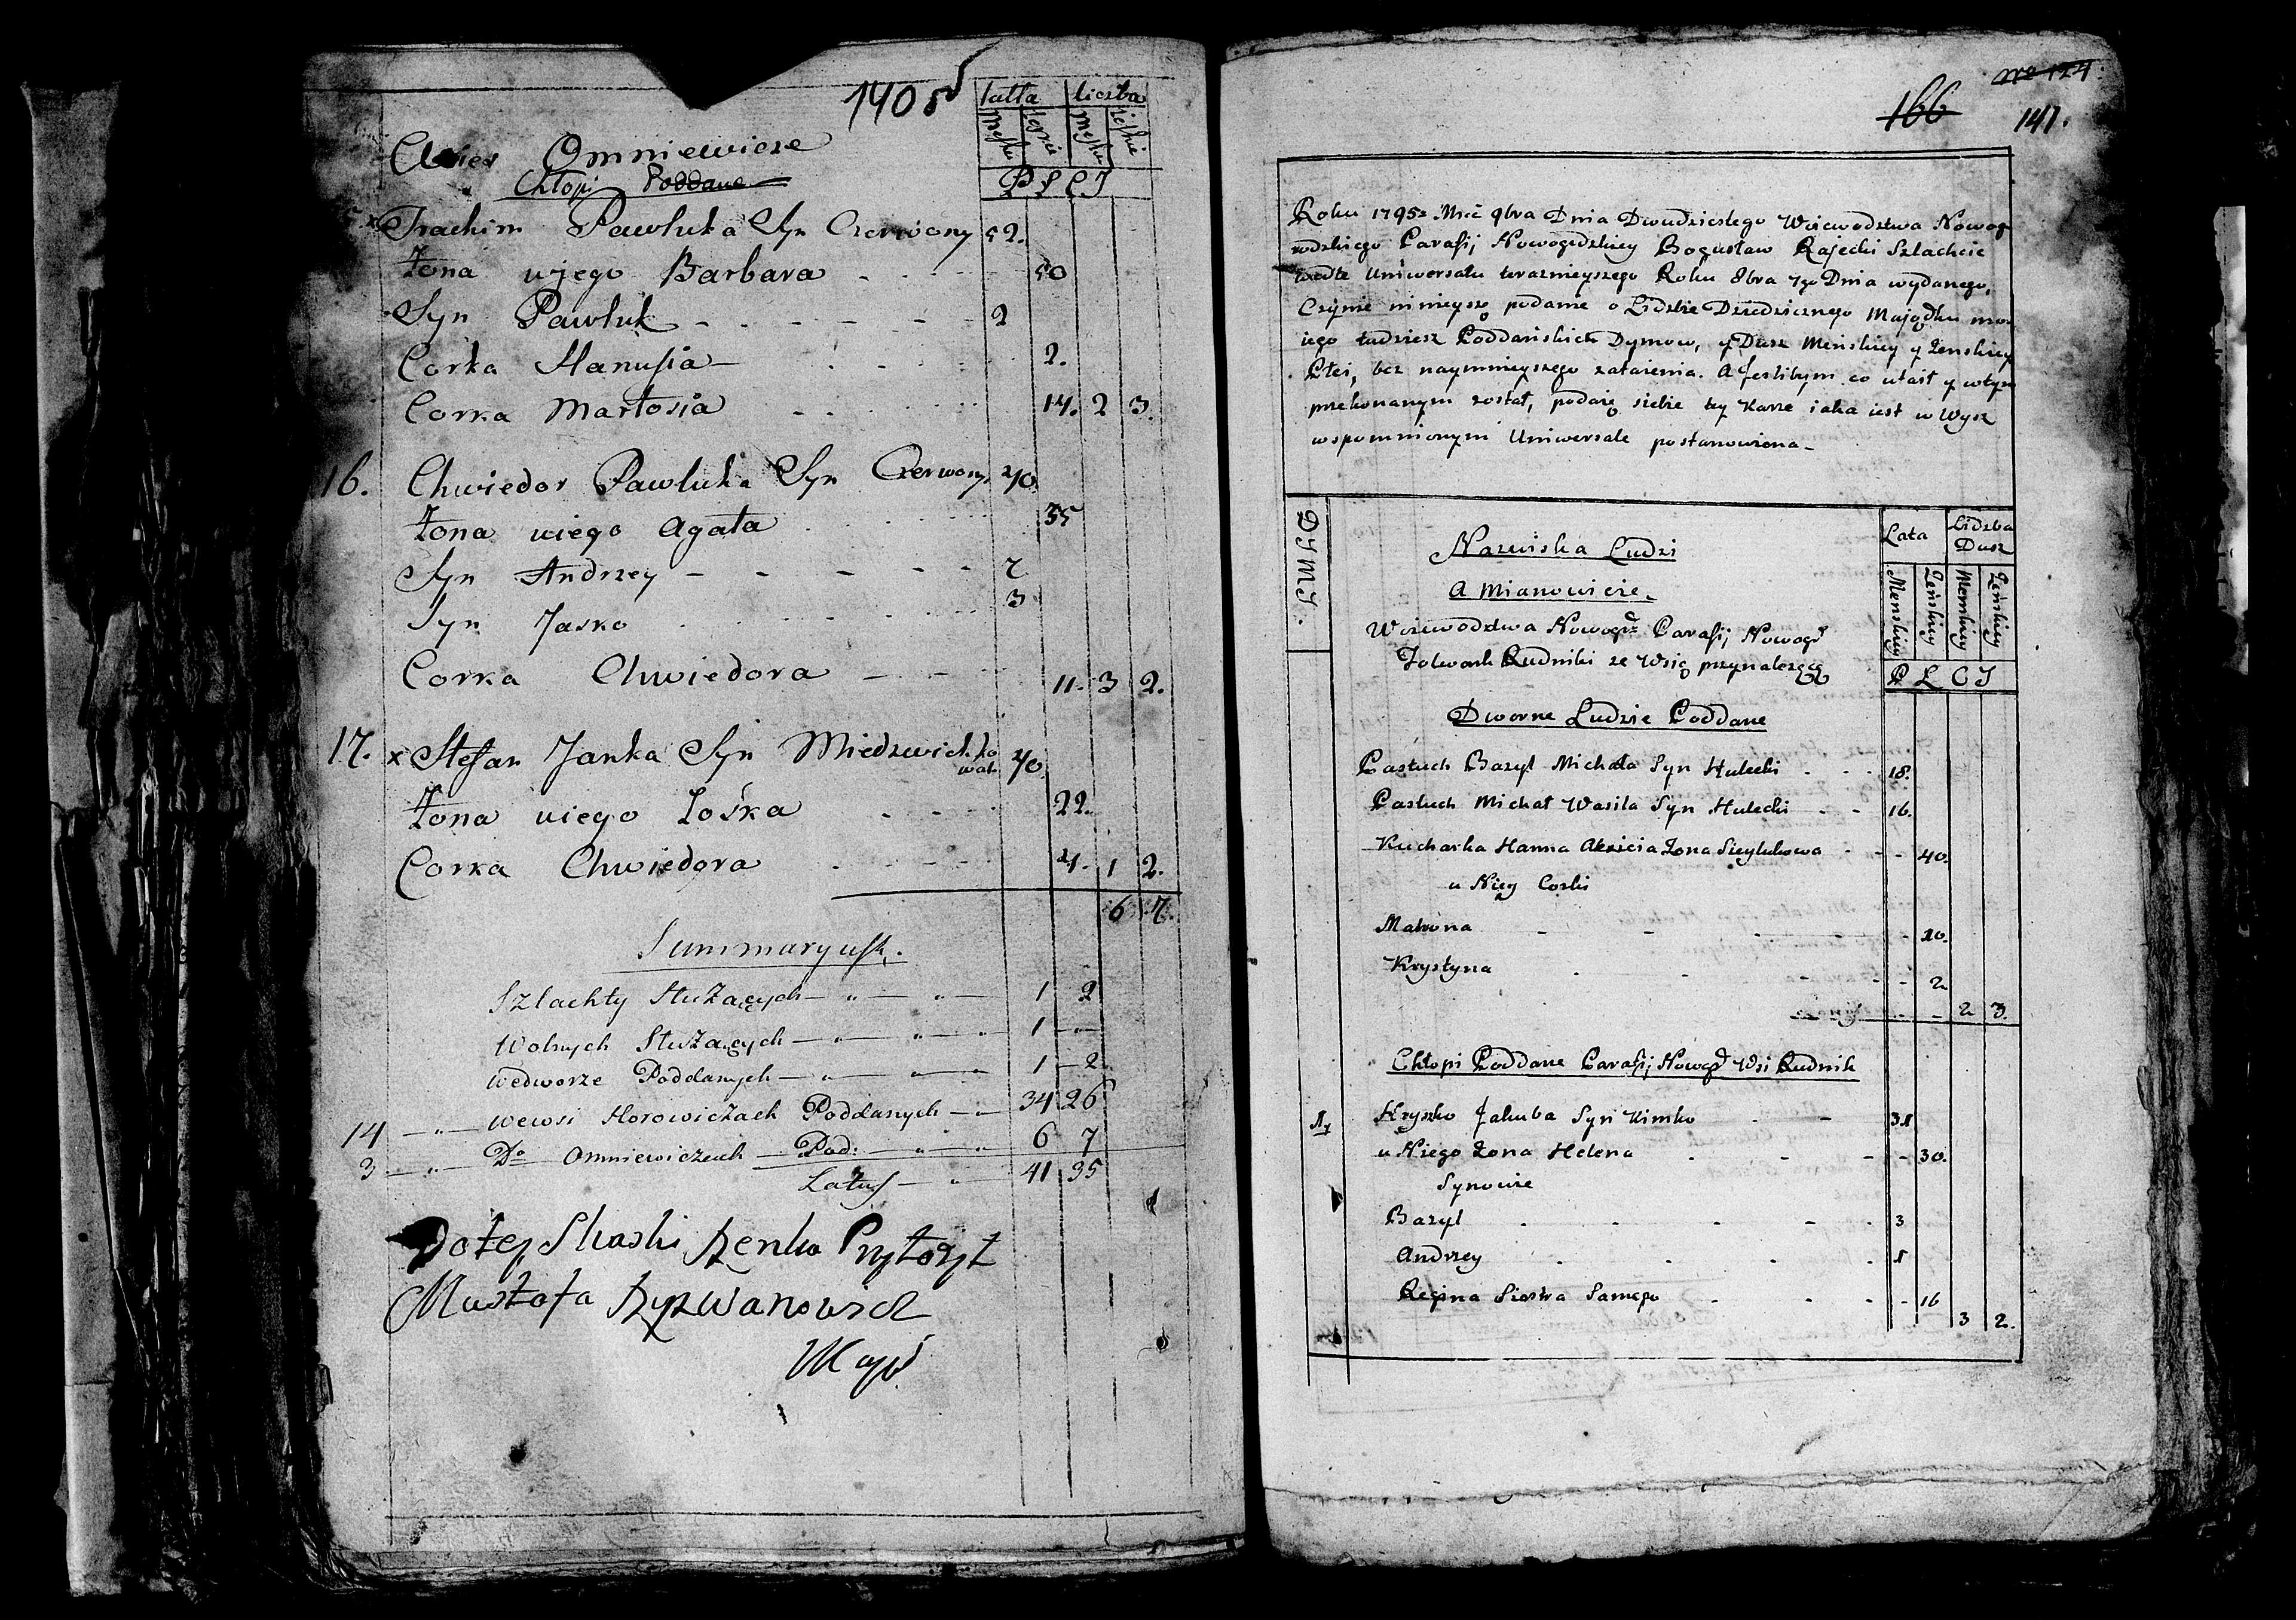 140
latta liczba
męska żeńska męska żeńska
Omniewicze
Chłopi Poddane
P Ł C I
Trachim Pawluka Syn Czerwony 52.
Żona ujego Barbara 50
Syn Pawluk 2
Corka Hanusia 2.
Corka Martosia 14. 2 3.
16. Chwiedor Pawluka Syn Czerwony 40
Żona uiego Agata 35
Syn Andrzey 7
Syn Jasko 3
Corka Chwiedora 11. 3 2.
17. x Stefan Janka Syn 40
Żona uiego Zośka 22.
Corka Chwiedora 4. 1 2.
6 7.
Summaryusz.
Szlachty Służących 1 2
Wolnych Służących 1
Wedworze Poddanych 1 2
14 wewsi Horowiczach Poddanych 34 26
3 Do Omniewiczach Pod: 6 7
Latus 41 35
Mustafa Ryzwanowicz
166
141.
Roku 1795 Mca 9bra Dnia Dwudziestego Wojewodztwa Nowog-
rodzkiego Parafij Nowogrodzkiey Bogusław Rajecki Szlachcic
wedle Uniwersału terazniejszego Roku 8bra 7go Dnia wydanego,
Czynie ninieysze podanie o Lidzbie Dziedzicznego Majądku mo-
iego tudziesz Poddańskich Dymow, y Dusz Meńskiey y Żenskiey
Płci, bez naymnieyszego zataienia. A jeslibym co utaił y wtym
przekonanym został, podaię siebie tey Karze iaka iest w Wysz
wspomnionym Uniwersale postanowiona
DYMY.
Nazwiska Ludzi
A Mianowicie
Lata
Lidzba Dusz
Menskiey Żeńskiey Menskiey Żeńskiey
P Ł C I
Wojewodztwa Nowogr Parafij Nowogr
Folwark Rudniki ze Wsią przynależącą
Dworne Ludzie Poddane
Pastuch Bazyl Michała Syn Hulecki 18.
Pastuch Michał Wasila Syn Hulecki 16.
Kucharka Hanna Żona 40.
u Niey Corki
Matrona 10.
Krystyna 2
2 3.
Chłopi Poddane Parafij Nowogr Wsi Rudnik
1 Hryszko Jakuba Syn Kimko 31
u Niego Żona Helena 30.
Synowie
Bazyl 3
Andrzey 1
Regina Siostra Samego 16
3 2.